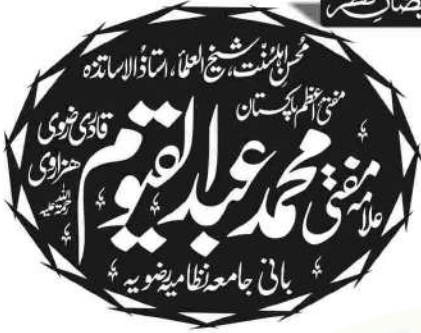 فیضانِ نظر
محسنِ اہلسنّت، شیخ العلماء، استاذ الاساتذہ
مفتی اعظم پاکستان
علامہ مفتی محمد عبدالقیوم قادری رضوی ہزاروی رحمۃ اللہ علیہ
بانی جامعہ نظامیہ رضویہ